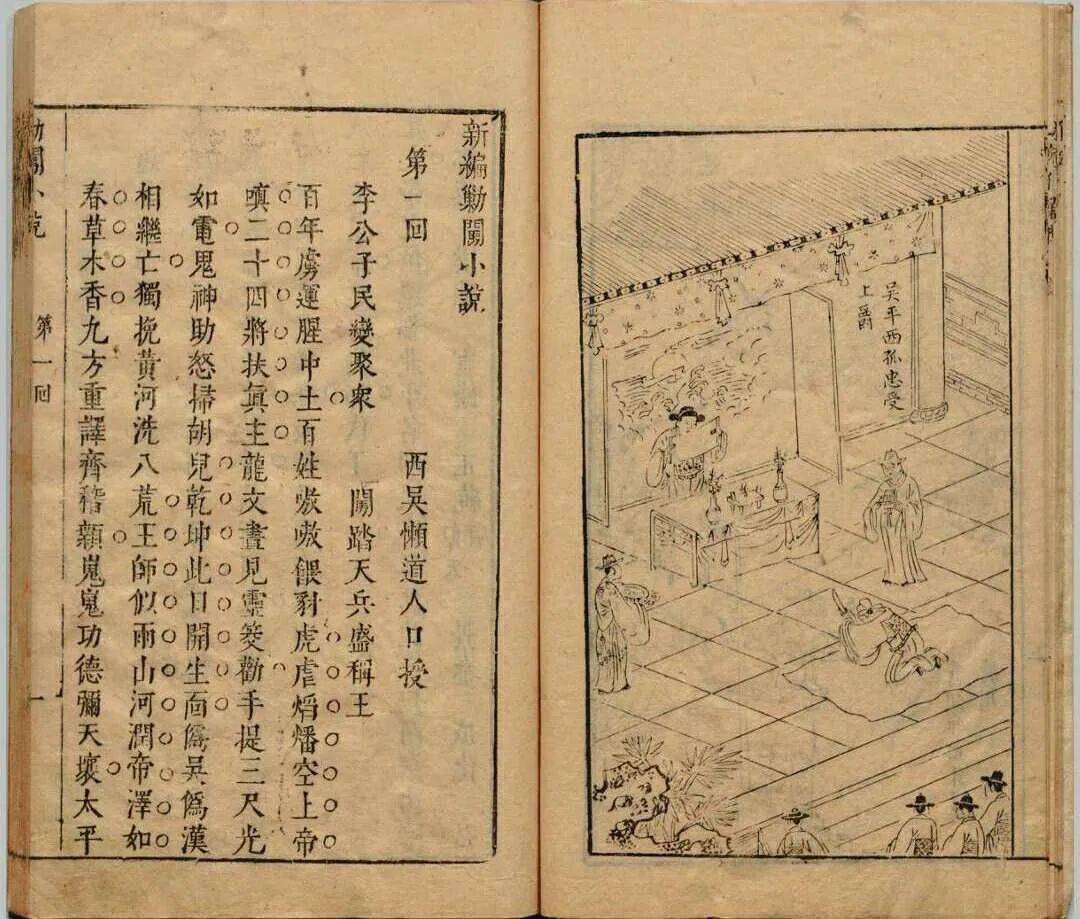 吳平西孤忠受
上爵
新編勦闖小說
第一回 西吳懶道人口授
李公子民變聚衆 闖踏天兵盛稱王
百年虜運腥中土百姓嗷嗷餵豺虎虐熖燔空上帝
嗔二十四將扶眞主龍文晝見靈筊勸手提三尺光
如電鬼神助怒掃胡兒乾坤此日開生面僞吳僞漢
相繼亡獨挽黃河洗八荒王師似雨山河潤帝澤如
春草木香九方重譯齊稽顙嵬嵬功德彌天壤太平
闖小說 第一回 一